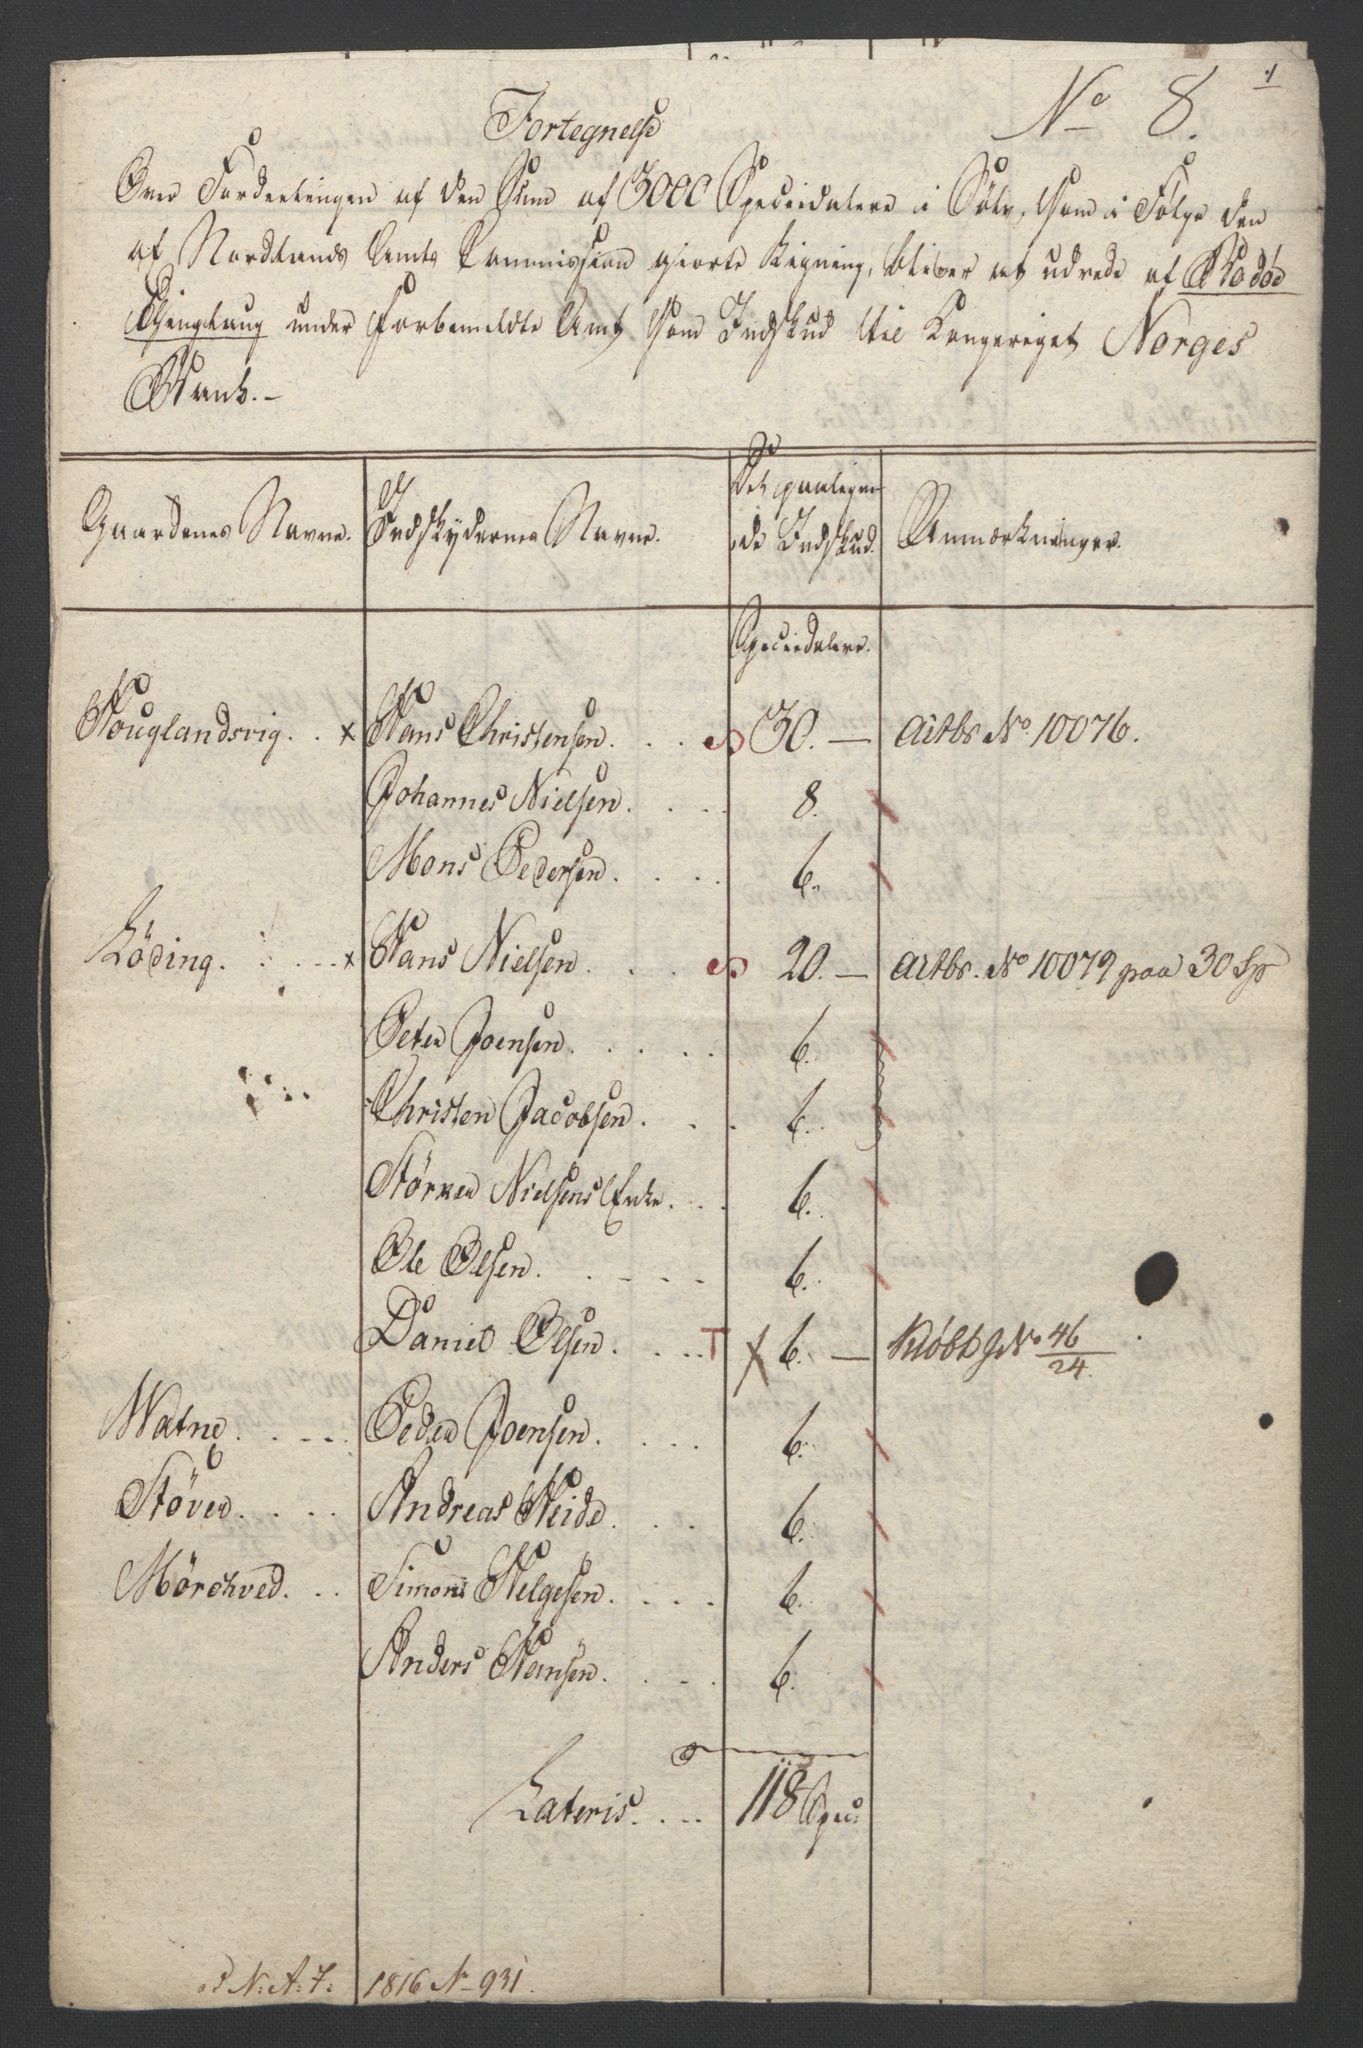 No 8.
1
Fortegnelse
Over Fordeelingen af den Sum af 3000 Speciedalere i Sølv, som i Følge den
af Nordlands Amts Commission giorte Ligning, bliver at udrede af Bodøe
Thinglaug under forbemeldte Amt som Indskud til Kongeriget Norges
Bank.-
Gaardenes Navne. Indskydernes Navne. Det paalagne Indskud. Anmærkninger.
Speciedalere.
Houglandsvig. . x Hans Christensen. . . . 30. — Actbr No 10076.
Johannes Nielsen. . . . 8.
Mons Pedersen. . . . 6.
Löding. . . . x Hans Nielsen. . . . 20. — Actbr. No 10079 paa 30 Sp
Peter Joensen. . . . . 6.
Christen Jacobsen. . . . 6.
Störker Nielsens Enke. . . 6.
Ole Olsen. . . . . 6.
Daniel Olsen. . . . T x 6. — Kiöbt g No 46/24.
Watne. . . . Peder Joensen. . . . 6.
Stöver. . . . Andreas Heide. . . . 6.
Mörchved. . . Simon Helgesen. . . . . 6.
Anders Hansen. . . . 6.
Lateris. . . . 118 Spec:
N: A: 7: 1816 No 931.